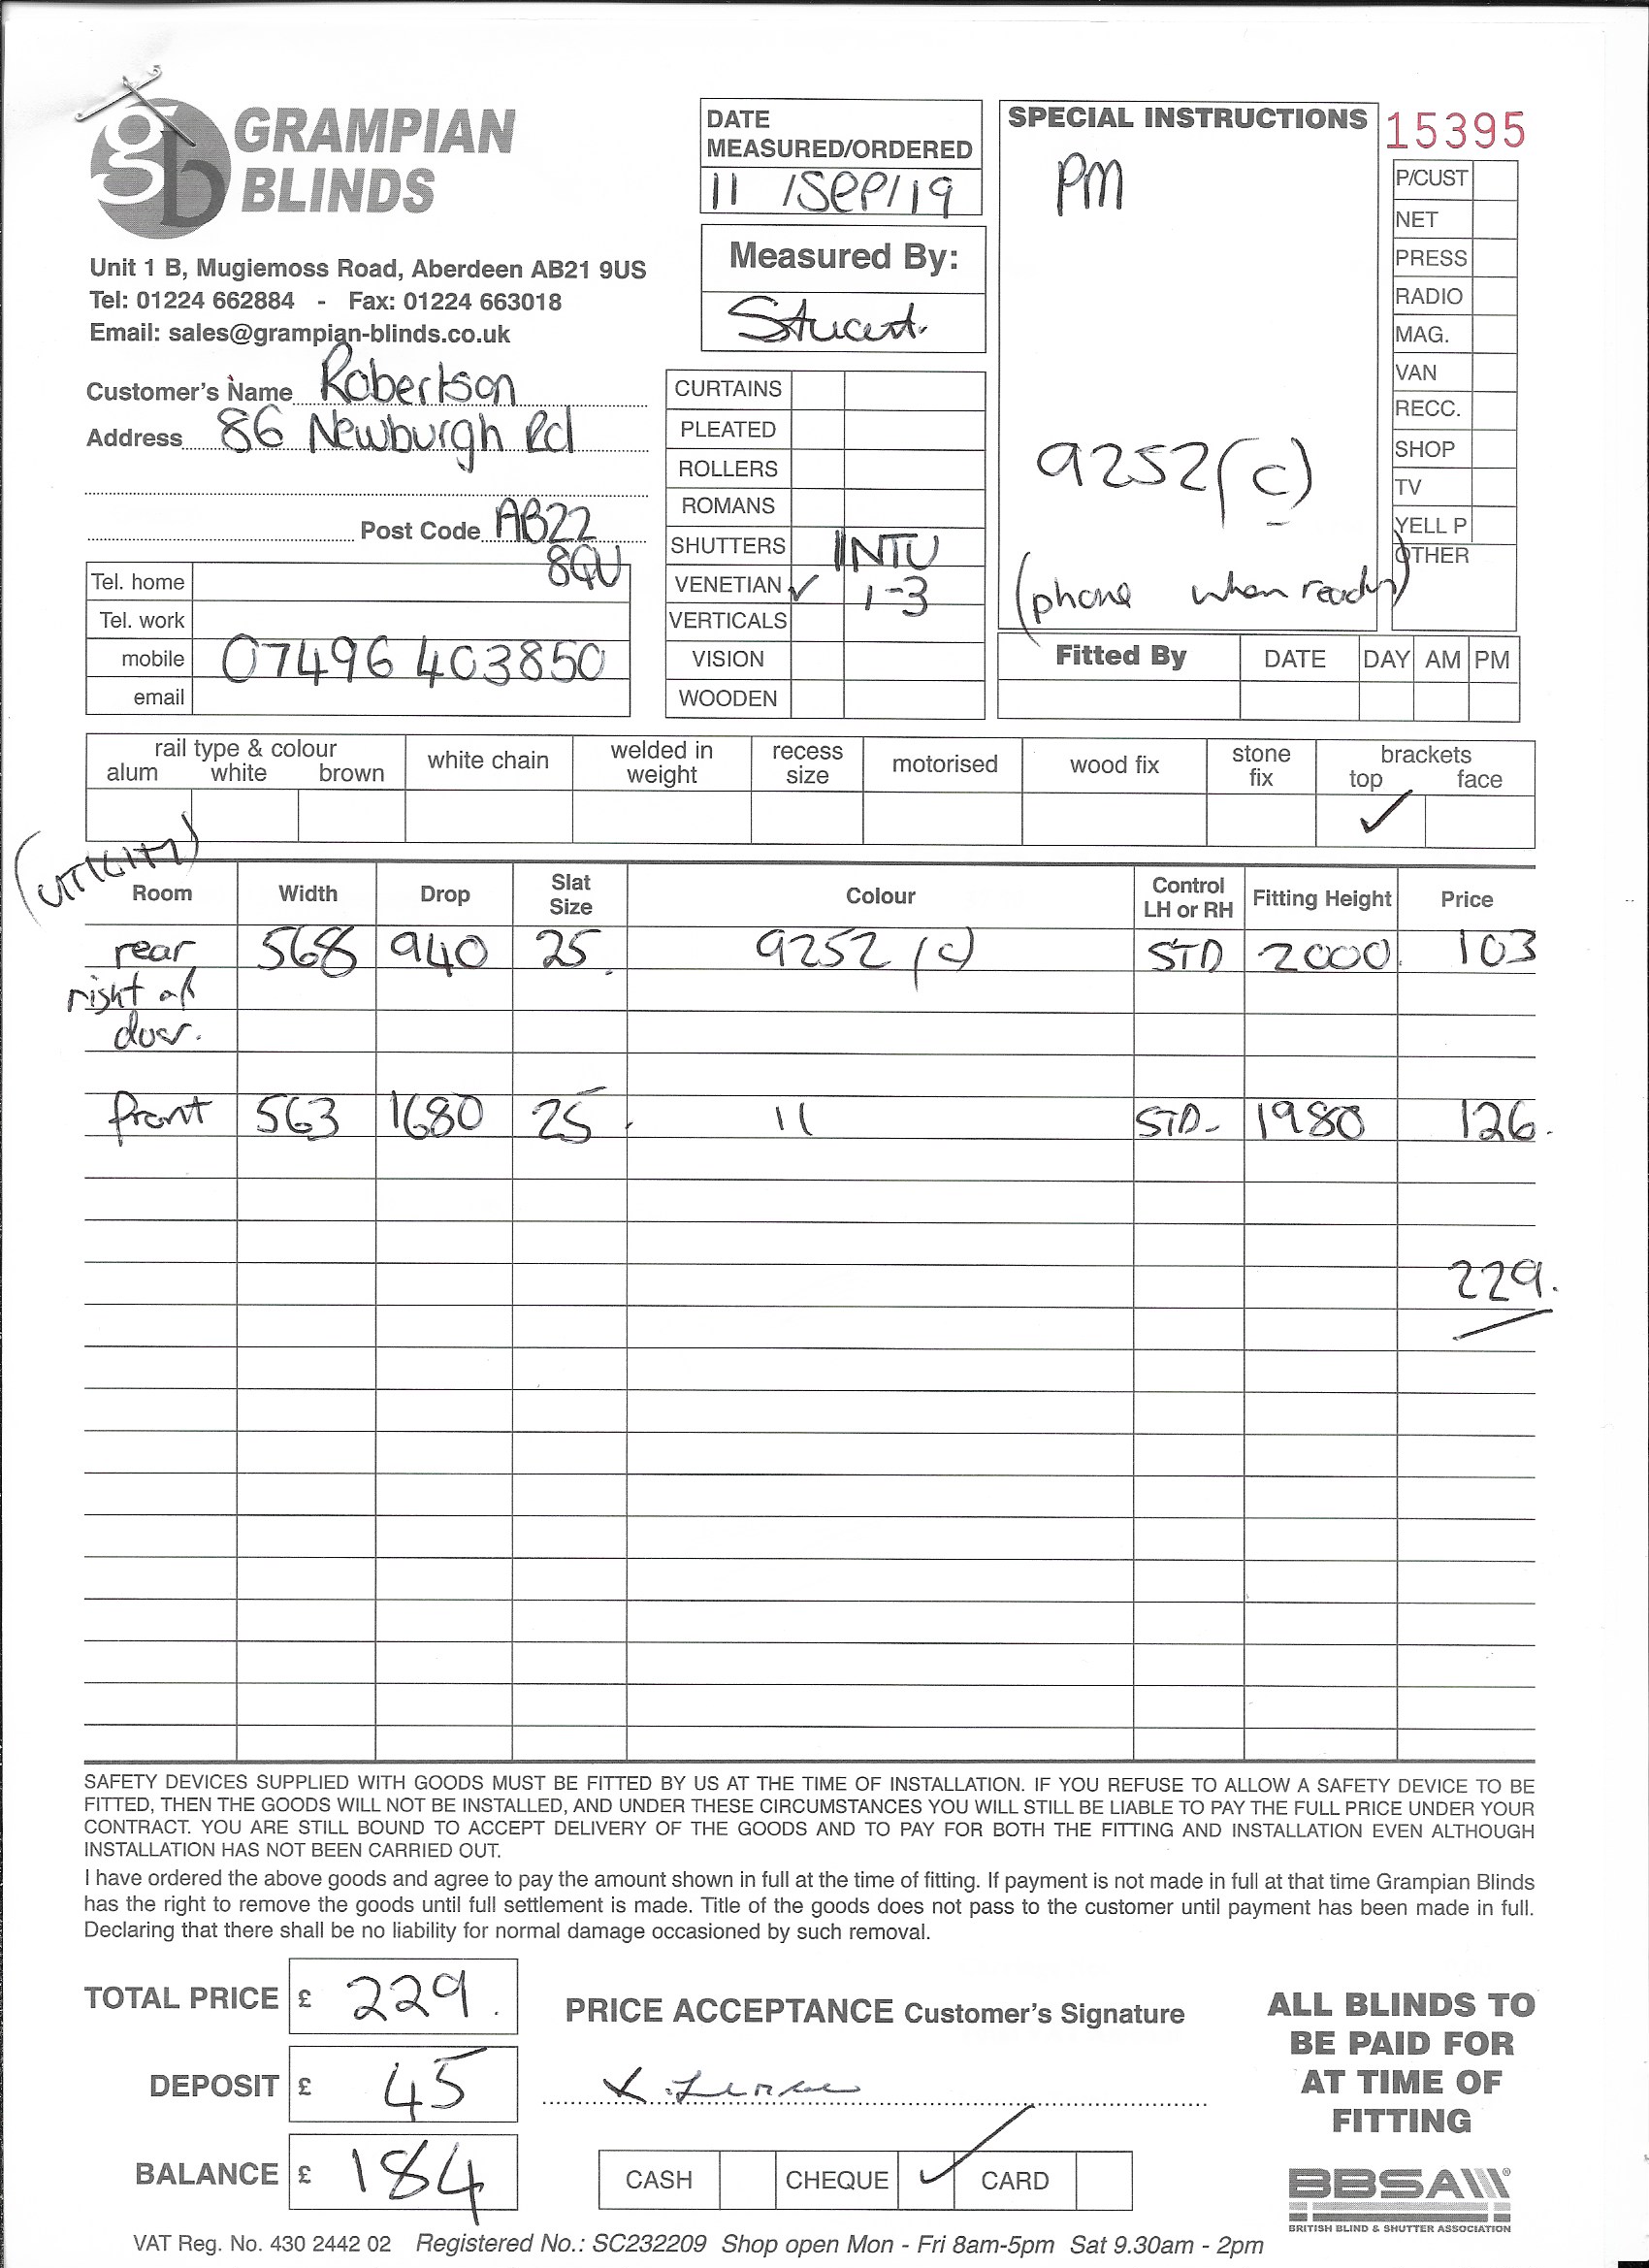 GRAMPIAN
BLINDS
gb
Unit 1 B, Mugiemoss Road, Aberdeen AB21 9US
Tel: 01224 662884 - Fax: 01224 663018
Email: sales@grampian-blinds.co.uk
Customer's Name Robertson
Address 86 Newburgh Rd
Post Code AB22
8GU
Tel. home
Tel. work
mobile 07496 403850
email
DATE
MEASURED/ORDERED
11 /SEP/19
Measured By:
Stuart.
CURTAINS
PLEATED
ROLLERS
ROMANS
SHUTTERS INTU
VENETIAN ✓ 1-3
VERTICALS
VISION
WOODEN
SPECIAL INSTRUCTIONS
PM
9252 (c)
(phone when ready)
15395
P/CUST
NET
PRESS
RADIO
MAG.
VAN
RECC.
SHOP
TV
YELL P
OTHER
Fitted By DATE DAY AM PM
rail type & colour white chain welded in weight recess size motorised wood fix stone fix brackets
alum white brown top face
✓
(UTILITY)
Room Width Drop Slat Size Colour Control LH or RH Fitting Height Price
rear 568 940 25 9252 (c) STD 2000 103
right of
door.
front 563 1680 25 11 STD- 1980 126.
229.
SAFETY DEVICES SUPPLIED WITH GOODS MUST BE FITTED BY US AT THE TIME OF INSTALLATION. IF YOU REFUSE TO ALLOW A SAFETY DEVICE TO BE
FITTED, THEN THE GOODS WILL NOT BE INSTALLED, AND UNDER THESE CIRCUMSTANCES YOU WILL STILL BE LIABLE TO PAY THE FULL PRICE UNDER YOUR
CONTRACT. YOU ARE STILL BOUND TO ACCEPT DELIVERY OF THE GOODS AND TO PAY FOR BOTH THE FITTING AND INSTALLATION EVEN ALTHOUGH
INSTALLATION HAS NOT BEEN CARRIED OUT.
I have ordered the above goods and agree to pay the amount shown in full at the time of fitting. If payment is not made in full at that time Grampian Blinds
has the right to remove the goods until full settlement is made. Title of the goods does not pass to the customer until payment has been made in full.
Declaring that there shall be no liability for normal damage occasioned by such removal.
TOTAL PRICE £ 229.
DEPOSIT £ 45
BALANCE £ 184
PRICE ACCEPTANCE Customer's Signature
CASH CHEQUE ✓ CARD
ALL BLINDS TO
BE PAID FOR
AT TIME OF
FITTING
BBSA
BRITISH BLIND & SHUTTER ASSOCIATION
VAT Reg. No. 430 2442 02 Registered No.: SC232209 Shop open Mon - Fri 8am-5pm Sat 9.30am - 2pm